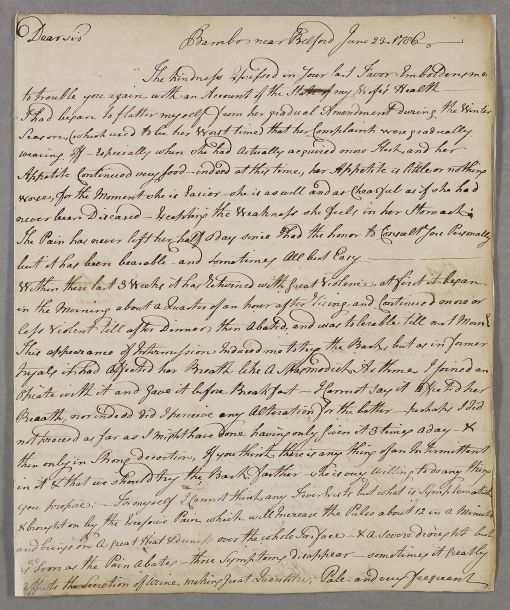 Dear Sir
Bambro near Belford June 22. 1786
The kindness expressed in your last Favor Emboldens me
to trouble you again with an Account of the State of my Wife's Health
I had began to flatter myself from her gradual Amendment during the Winter
Season, (which used to be her Worst time) that her Complaints were gradually
wearing off - Especially when she had actually acquired more Flesh, and her
Appetite Continued very good - indeed at this time, her Appetite is little or nothing
worse, for the Moment she is Easier she is as well and as Chearful as if she had
never been Diseased - Excepting the Weakness she feels in her Stomach
The Pain has never left her half a day since I had the honor to Consult you Personally
but it has been bearable - and sometimes All but Easy
Within these last 3 Weeks it has returned with great Violence, at first it began
in the Morning about a Quarter of an hour after rising, and Continued more or
less Violent till after Dinner, then Abated, and was tolerable till next Morng
This appearance of Intermission Induced me to try the Bark, but as in former
tryals it had affected her Breath like A Spasmodick Asthma I joined an
Opiate with it and Gave it before Breakfast - I Cannot say it affected her
Breath, nor indeed did I perceive any Alteration for the better - perhaps I did
not proceed as far as I might have done having only given it 3 times a day - &
then only in Strong decoction, if you think there is any thing of an Intermittent
in it & that we should try the Bark farther - she is very Willing to do any thing
you propose. - For myself I Cannot think any Fever but what is Symptomatick
& brought on by the Excessive Pain which will increase the Pulse about 12 in a Minute
and brings on A great Heat & dryness over the whole Surface - & A severe drought but
as soon as the Pain Abates - those Symptoms disappear - sometimes it greatly
affects the Secretion of Urine, making great Quantities, Pale and very frequent